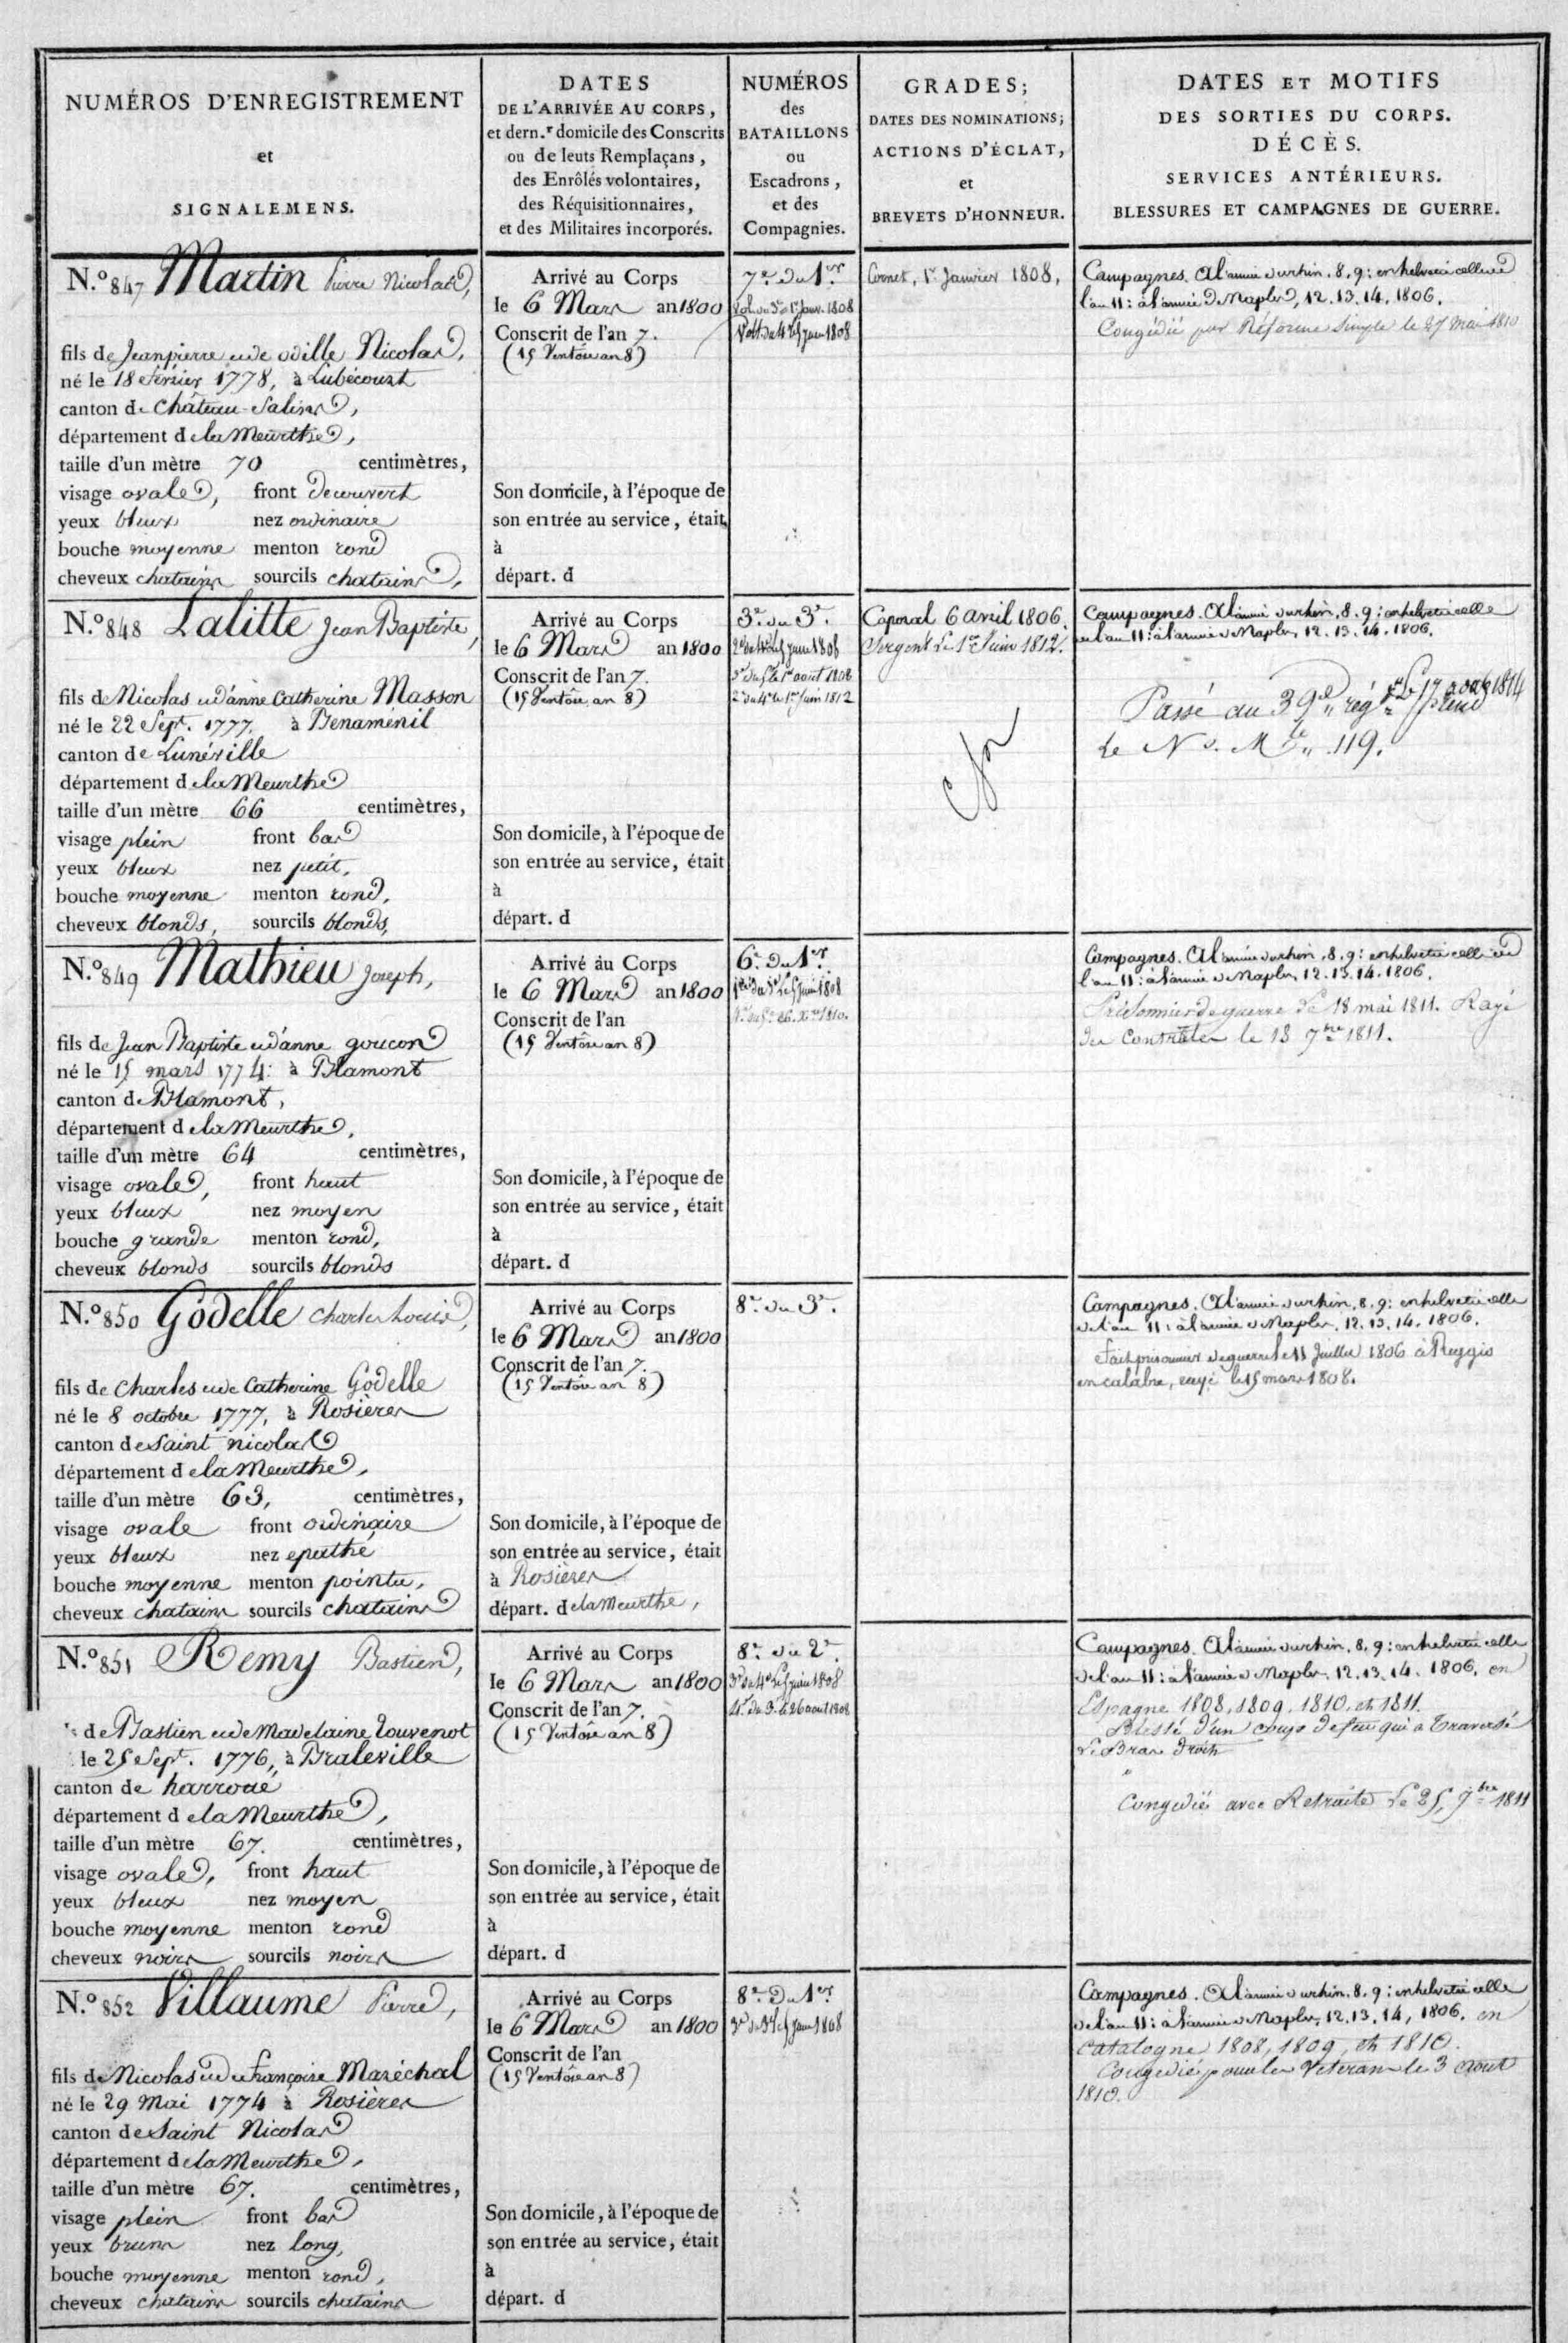 NUMÉROS D'ENREGISTREMENT
et
SIGNALEMENS.
DATES
DE L'ARRIVÉE AU CORPS,
et dern.r domicile des Conscrits
ou de leuts Remplaçans,
des Enrôlés volontaires,
des Réquisitionnaires,
et des Militaires incorporés.
NUMÉROS
des
BATAILLONS
ou
Escadrons,
et des
Compagnies.
GRADES;
DATES DES NOMINATIONS;
ACTIONS D'ÉCLAT,
et
BREVETS D'HONNEUR.
DATES ET MOTIFS
DES SORTIES DU CORPS.
DÉCÈS.
SERVICES ANTÉRIEURS.
BLESSURES ET CAMPAGNES DE GUERRE.
N.º 847 Martin Pierre Nicolas,
fils de Jeanpierre et de odille Nicolas,
né le 18 février 1778, à Lubécourt
canton de Château-Salins,
département de la Meurthe,
taille d'un mètre 70 centimètres,
visage ovale, front decouvert
yeux bleux nez ordinaire
bouche moyenne menton rond
cheveux chatains sourcils chatains,
Arrivé au Corps
le 6 Mars an 1800
Conscrit de l'an 7.
(15 Ventôse an 8)
Son domicile, à l'époque de
son entrée au service, était
à
départ. d
7e. du 1er.
Volt. du 3e 1er Janv. 1808
Volt. du 4e le 5 Juin 1808
Cornet, 1er Janvier 1808,
Campagnes. A l'armée du rhin, 8, 9: en helvetie celle de
l'an 11: à l'armée de Naples, 12. 13. 14. 1806.
Congédié par Réforme simple le 27 mai 1810
N.º 848 Lalitte Jean Baptiste,
fils de Nicolas et d'anne Catherine Masson
né le 22 Sept. 1777, à Benaménil
canton de Lunéville
département de la Meurthe
taille d'un mètre 66 centimètres,
visage plein front bas
yeux bleux nez petit,
bouche moyenne menton rond,
cheveux blonds, sourcils blonds,
Arrivé au Corps
le 6 Mars an 1800
Conscrit de l'an 7.
(15 Ventôse an 8)
Son domicile, à l'époque de
son entrée au service, était
à
départ. d
3e. du 3e.
2e du 4e le 5 Juin 1808
3e du 5e le 1er aout 1808
2e du 4e le 1er Juin 1812
Caporal 6 avril 1806.
Sergent Le 1er Juin 1812.
Campagnes. A l'armée du rhin, 8. 9: en helvetie celle
de l'an 11: à l'armée de Naples, 12. 13. 14. 1806.
Passé au 39e régt Le 17 aout 1814 prend
Le No. Mle 119.
N.º 849 Mathieu Joseph,
fils de Jean Baptiste et d'anne goucon
né le 15 mars 1774: à Blamont
canton de Blamont,
département de la Meurthe,
taille d'un mètre 64 centimètres,
visage ovale, front haut
yeux bleux nez moyen
bouche grande menton rond,
cheveux blonds sourcils blonds
Arrivé au Corps
le 6 Mars an 1800
Conscrit de l'an
(15 Ventôse an 8)
Son domicile, à l'époque de
son entrée au service, était
à
départ. d
6e. du 1er.
le 5 Juin 1808
26. Xbre 1810.
Campagnes. A l'armée du rhin, 8. 9: en helvetie celle de
l'an 11: à l'armée de Naples, 12. 13. 14. 1806.
Prisonnier de guerre le 18 mai 1811. Rayé
des Contrôles le 13 7bre 1811.
N.º 850 Godelle Charles Louis,
fils de Charles et de Catherine Godelle
né le 8 octobre 1777, à Rosières
canton de Saint nicolas
département de la Meurthe,
taille d'un mètre 63, centimètres,
visage ovale front ordinaire
yeux bleux nez epaté
bouche moyenne menton pointu,
cheveux chatains sourcils chatains
Arrivé au Corps
le 6 Mars an 1800
Conscrit de l'an 7.
(15 Ventôse an 8)
Son domicile, à l'époque de
son entrée au service, était
à Rosières
départ. de la Meurthe,
8e. du 3e.
Campagnes. A l'armée du rhin, 8. 9: en helvetie celle
de l'an 11: à l'armée de Naples, 12. 13. 14. 1806.
fait prisonnier de guerre le 11 Juillet 1806 à Reggio
en calabre, rayé le 15 mars 1808.
N.º 851 Remy Bastien,
de Bastien et de Madelaine Touvenot
le 25 Sept. 1776, à Braleville
canton de harroué
département de la Meurthe,
taille d'un mètre 67. centimètres,
visage ovale, front haut
yeux bleux nez moyen
bouche moyenne menton rond
cheveux noirs sourcils noirs
Arrivé au Corps
le 6 Mars an 1800
Conscrit de l'an 7.
(15 Ventôse an 8)
Son domicile, à l'époque de
son entrée au service, était
à
départ. d
8e. du 2e.
3e du 4e Le 5 Juin 1808
4e. du 3. le 26 aout 1808
Campagnes. A l'armée du rhin, 8. 9: en helvetie celle
de l'an 11: à l'armée de Naples, 12. 13. 14. 1806. en
Espagne 1808, 1809, 1810. et 1811.
Blessé d'un coup de feu qui a Traversé
Le Bras droit
Congédié avec Retraite Le 25 7bre 1811
N.º 852 Villaume Pierre,
fils de Nicolas et de Françoise Maréchal
né le 29 Mai 1774 à Rosières
canton de Saint Nicolas
département de la Meurthe,
taille d'un mètre 67. centimètres,
visage plein front bas
yeux bruns nez long,
bouche moyenne menton rond,
cheveux chatains sourcils chatains
Arrivé au Corps
le 6 Mars an 1800
Conscrit de l'an
(15 Ventôse an 8)
Son domicile, à l'époque de
son entrée au service, était
à
départ. d
8e. du 1er.
3e du 3e le 5 Juin 1808
Campagnes. A l'armée du rhin, 8. 9: en helvetie celle
de l'an 11: à l'armée de Naples, 12. 13. 14, 1806. en
Catalogne 1808, 1809, et 1810.
Congédié pour les Veterans le 3 Aout
1810.